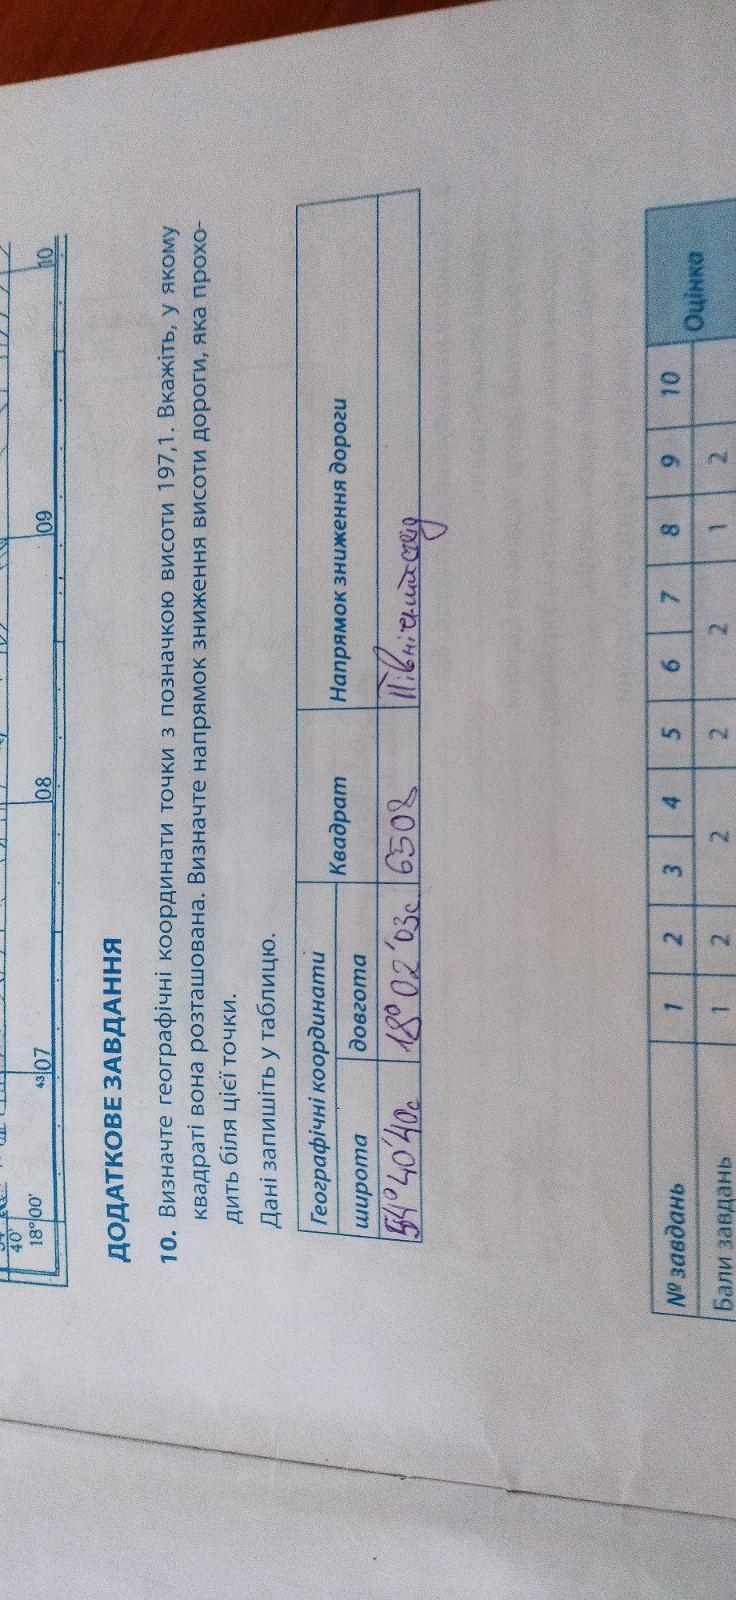 54°
40'
18°00'
43 07
08
09
10
ДОДАТКОВЕ ЗАВДАННЯ
10. Визначте географічні координати точки з позначкою висоти 197,1. Вкажіть, у якому
квадраті вона розташована. Визначте напрямок зниження висоти дороги, яка прохо-
дить біля цієї точки.
Дані запишіть у таблицю.
Географічні координати Квадрат Напрямок зниження дороги
широта довгота
54°40'40с 18°02'03с 6508
№ завдань 1 2 3 4 5 6 7 8 9 10 Оцінка
Бали завдань 1 2 2 2 2 1 2